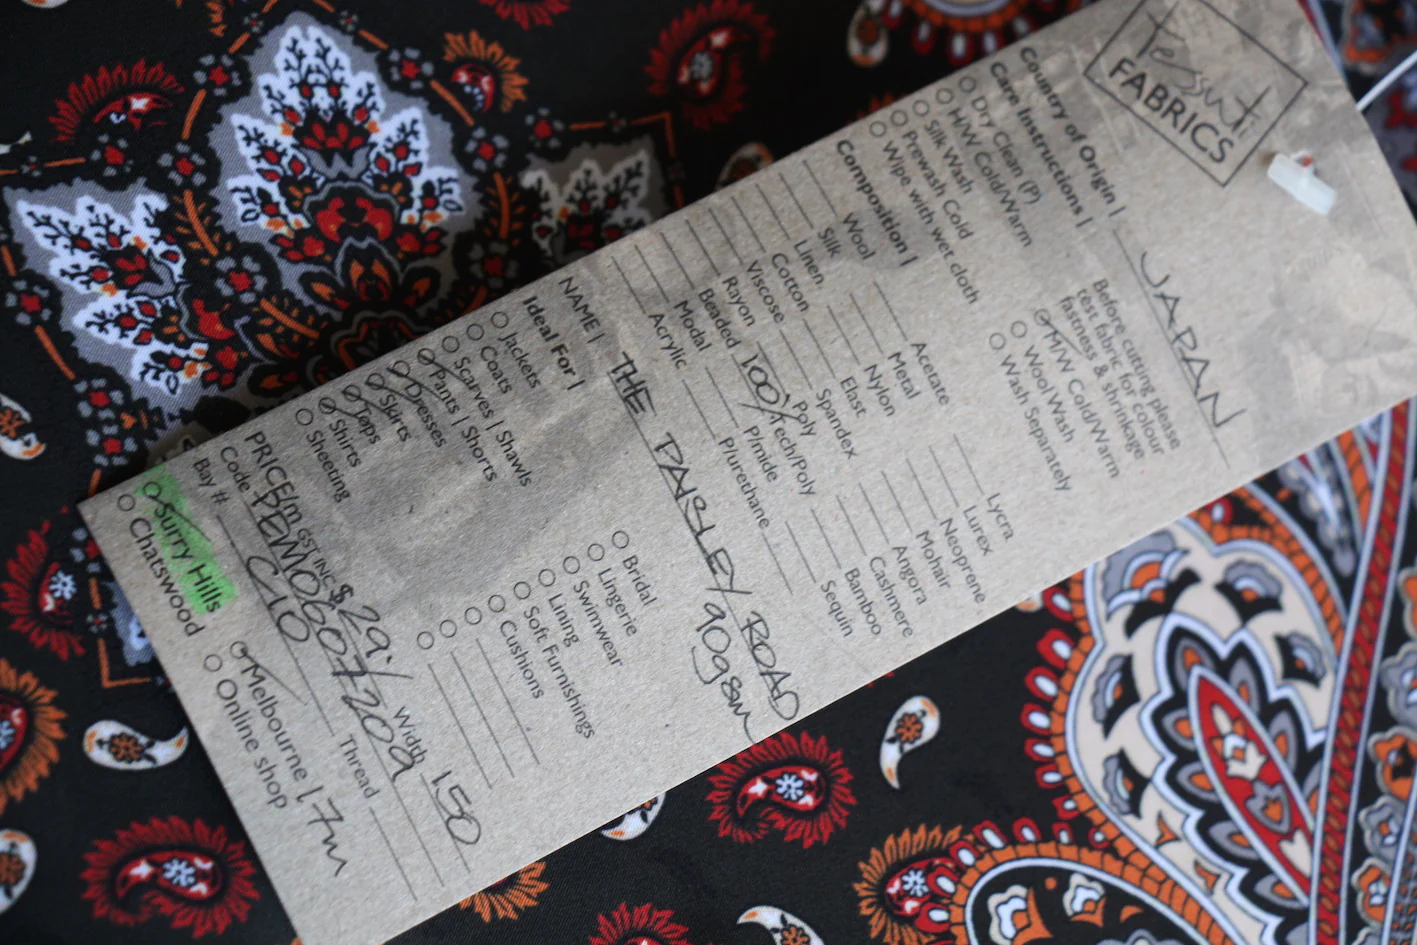 Tessuti
FABRICS
Country of Origin | JAPAN
Care Instructions |
Dry Clean (P)
H/W Cold/Warm
Silk Wash
Prewash Cold
Wipe with wet cloth
Before cutting please
test fabric for colour
fastness & shrinkage
M/W Cold/Warm
Wool Wash
Wash Separately
Composition |
Wool
Silk
Linen
Cotton
Viscose
Rayon
Beaded
Modal
Acrylic
Acetate
Metal
Nylon
Elast
Spandex
Poly
100% Tech/Poly
P/mide
P/urethane
Lycra
Lurex
Neoprene
Mohair
Angora
Cashmere
Bamboo
Sequin
NAME | THE PAISLEY ROAD
90gsm
Ideal For |
Jackets
Coats
Scarves | Shawls
Pants | Shorts
Dresses
Skirts
Tops
Shirts
Sheeting
Bridal
Lingerie
Swimwear
Lining
Soft Furnishings
Cushions
PRICE/m GST INC $29. Width 150
Code
Bay # C10 Thread
Surry Hills
Chatswood
Melbourne 17m
Online shop